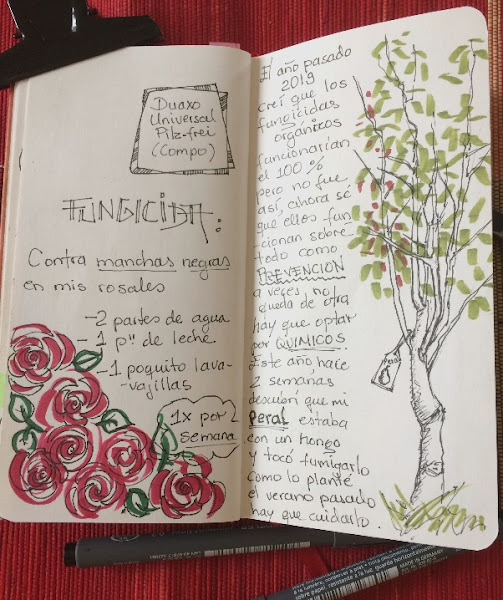 Duaxo
Universal
Pilz-frei
(Compo)
FUNGICIDA:
Contra manchas negras
en mis rosales
-2 partes de agua
-1 p" de leche
-1 poquito lava-
vajillas
1x por
semana
El año pasado
2019
creí que los
fungicidas
orgánicos
funcionarían
el 100%
pero no fue
así, ahora sé
que ellos fun
-cionan sobre
todo como
PREVENCION
a veces no
queda de otra
hay que optar
por QUIMICOS
este año hace
2 semanas
descubrí que mi
peral estaba
con un Hongo
y tocó fumigarlo
como lo planté
el verano pasado
hay que cuidarlo.
Peral
MADE IN GERMANY